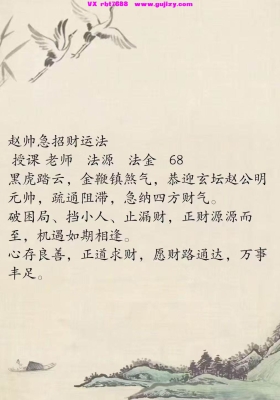 VX rbt7688 www.gujizy.com
赵帅急招财运法
授课 老师 法源 法金 68
黑虎踏云，金鞭镇煞气，恭迎玄坛赵公明
元帅，疏通阻滞，急纳四方财气。
破困局、挡小人、止漏财，正财源源而
至，机遇如期相逢。
心存良善，正道求财，愿财路通达，万事
丰足。